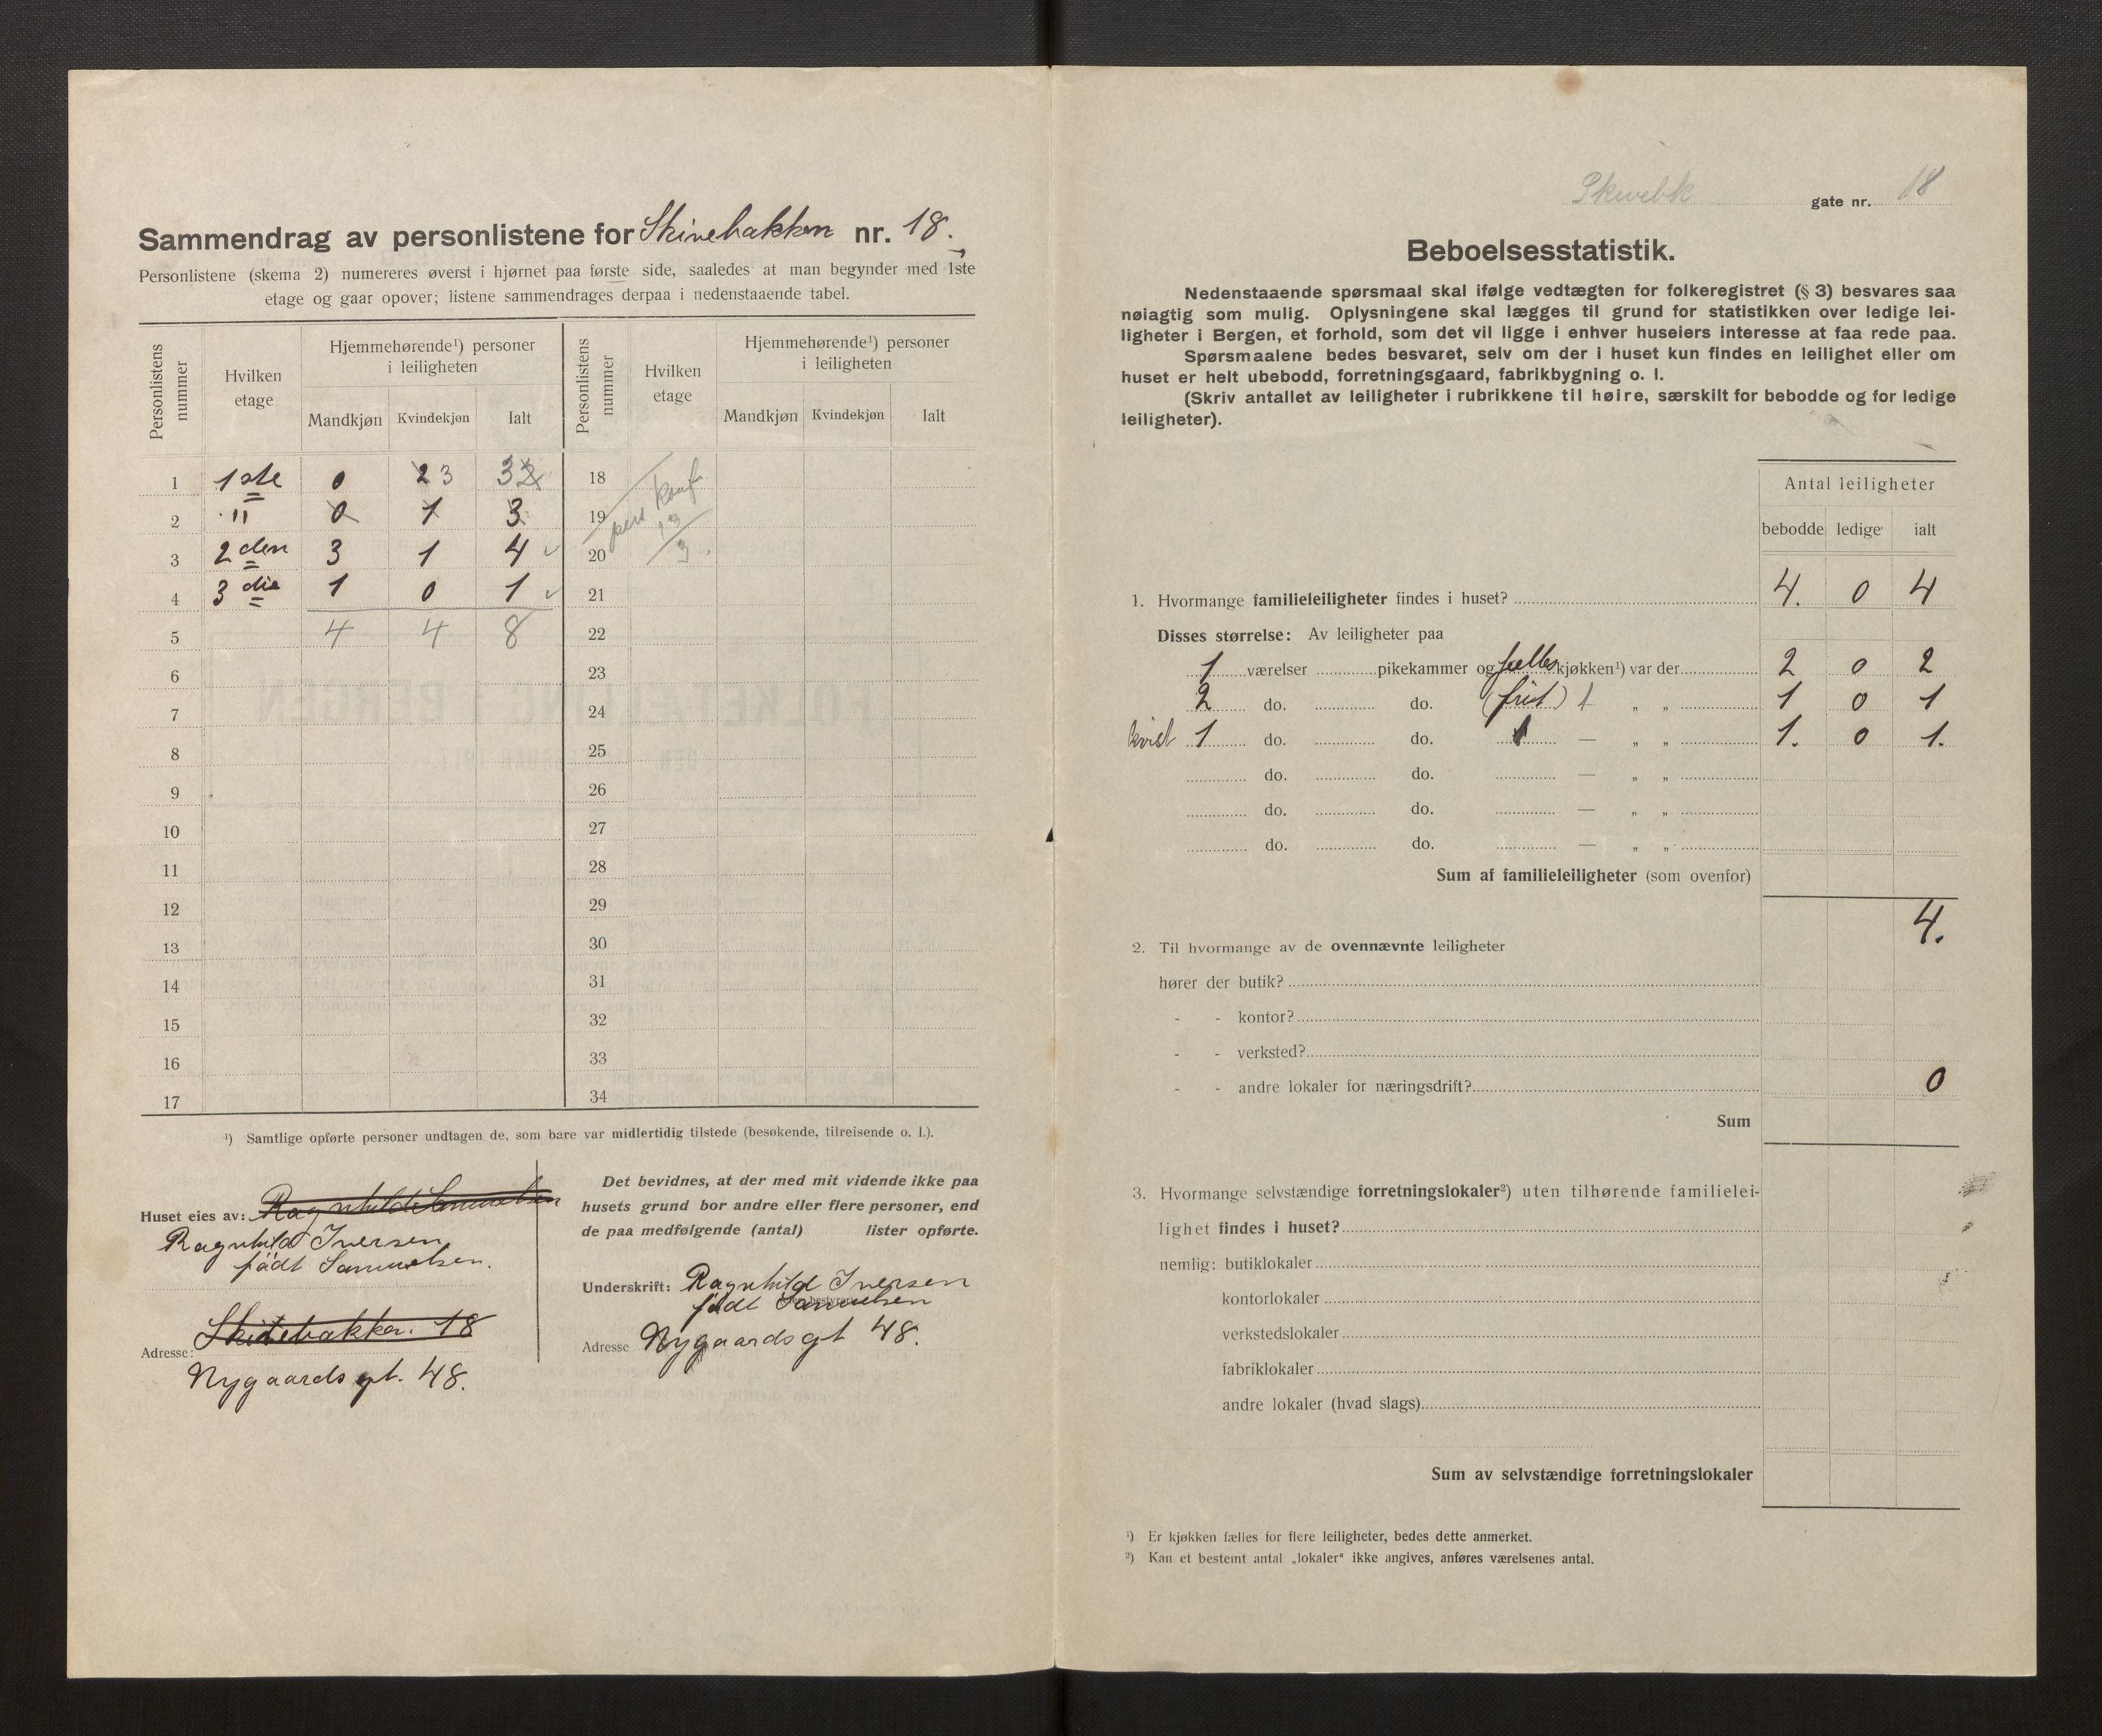 Sammendrag av personlistene for Skivebakken nr. 18.
Personlistene (skema 2) numereres øverst i hjørnet paa første side, saaledes at man begynder med 1ste
etage og gaar opover; listene sammendrages derpaa i nedenstaaende tabel.
Personlistens nummer
Hvilken etage
Hjemmehørende¹) personer i leiligheten
Mandkjøn Kvindekjøn Ialt
Personlistens nummer
Hvilken etage
Hjemmehørende¹) personer i leiligheten
Mandkjøn Kvindekjøn Ialt
1 1ste 0 2 3 3 2
2 " 0 1 3
3 2den 3 1 4
4 3die 1 0 1
5 4 4 8
6
7
8
9
10
11
12
13
14
15
16
17
18
19
20
21
22
23
24
25
26
27
28
29
30
31
32
33
34
¹) Samtlige opførte personer undtagen de, som bare var midlertidig tilstede (besøkende, tilreisende o. l.).
Huset eies av: Ragnhild Samuelsen
Ragnhild Iversen
født Samuelsen.
Adresse: Skivebakken 18
Nygaardsgt. 48.
Det bevidnes, at der med mit vidende ikke paa
husets grund bor andre eller flere personer, end
de paa medfølgende (antal) lister opførte.
Underskrift: Ragnhild Iversen
født Samuelsen
Adresse Nygaardsgt 48.
Skivebk gate nr. 18
Beboelsesstatistik.
Nedenstaaende spørsmaal skal ifølge vedtægten for folkeregistret (§ 3) besvares saa
nøiagtig som mulig. Oplysningene skal lægges til grund for statistikken over ledige lei-
ligheter i Bergen, et forhold, som det vil ligge i enhver huseiers interesse at faa rede paa.
Spørsmaalene bedes besvaret, selv om der i huset kun findes en leilighet eller om
huset er helt ubebodd, forretningsgaard, fabrikbygning o. l.
(Skriv antallet av leiligheter i rubrikkene til høire, særskilt for bebodde og for ledige
leiligheter).
Antal leiligheter
bebodde ledige ialt
1. Hvormange familieleiligheter findes i huset? 4. 0 4
Disses størrelse: Av leiligheter paa
1 værelser pikekammer og fælles kjøkken¹) var der 2 0 2
2 do. do. (frit) 1 " " 1 0 1
kvist 1 do. do. 1 — " " 1. 0 1.
do. do. — " "
do. do. — " "
do. do. — " "
Sum af familieleiligheter (som ovenfor)
4.
2. Til hvormange av de ovennævnte leiligheter
hører der butik?
- - kontor?
- - verksted?
- - andre lokaler for næringsdrift? 0
Sum
3. Hvormange selvstændige forretningslokaler²) uten tilhørende familielei-
lighet findes i huset?
nemlig: butiklokaler
kontorlokaler
verkstedslokaler
fabriklokaler
andre lokaler (hvad slags)
Sum av selvstændige forretningslokaler
¹) Er kjøkken fælles for flere leiligheter, bedes dette anmerket.
²) Kan et bestemt antal „lokaler" ikke angives, anføres værelsenes antal.